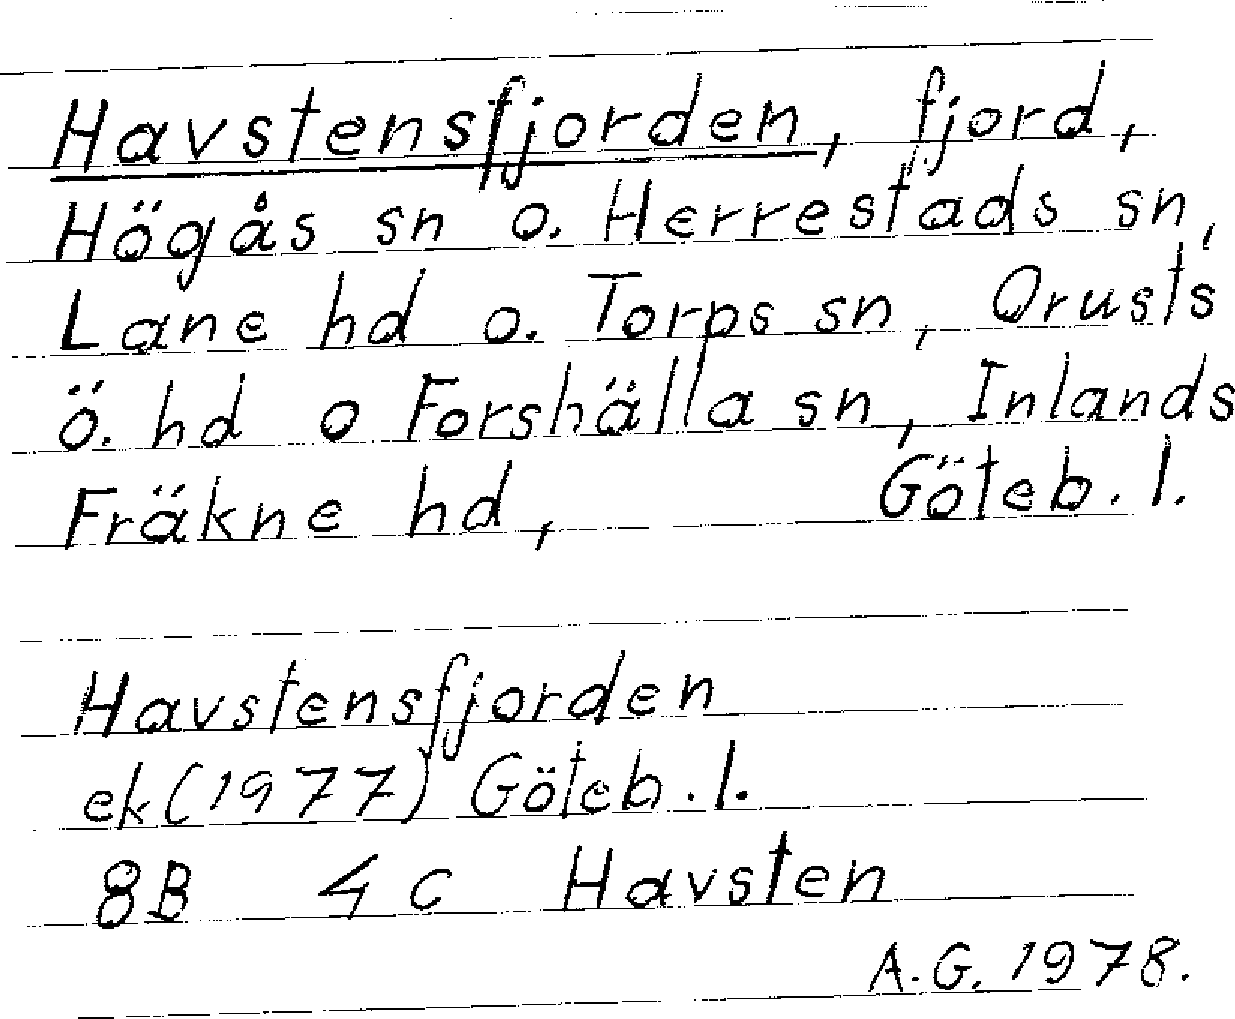 Havstensfjorden, fjord,
Högås sn o. Herrestads sn,
Lane hd o. Torps sn, Orusts
ö. hd o Forshälla sn, Inlands
Fräkne hd, Göteb. l.
Havstensfjorden
ek (1977) Göteb. l.
8B 4c Havsten
A.G. 1978.